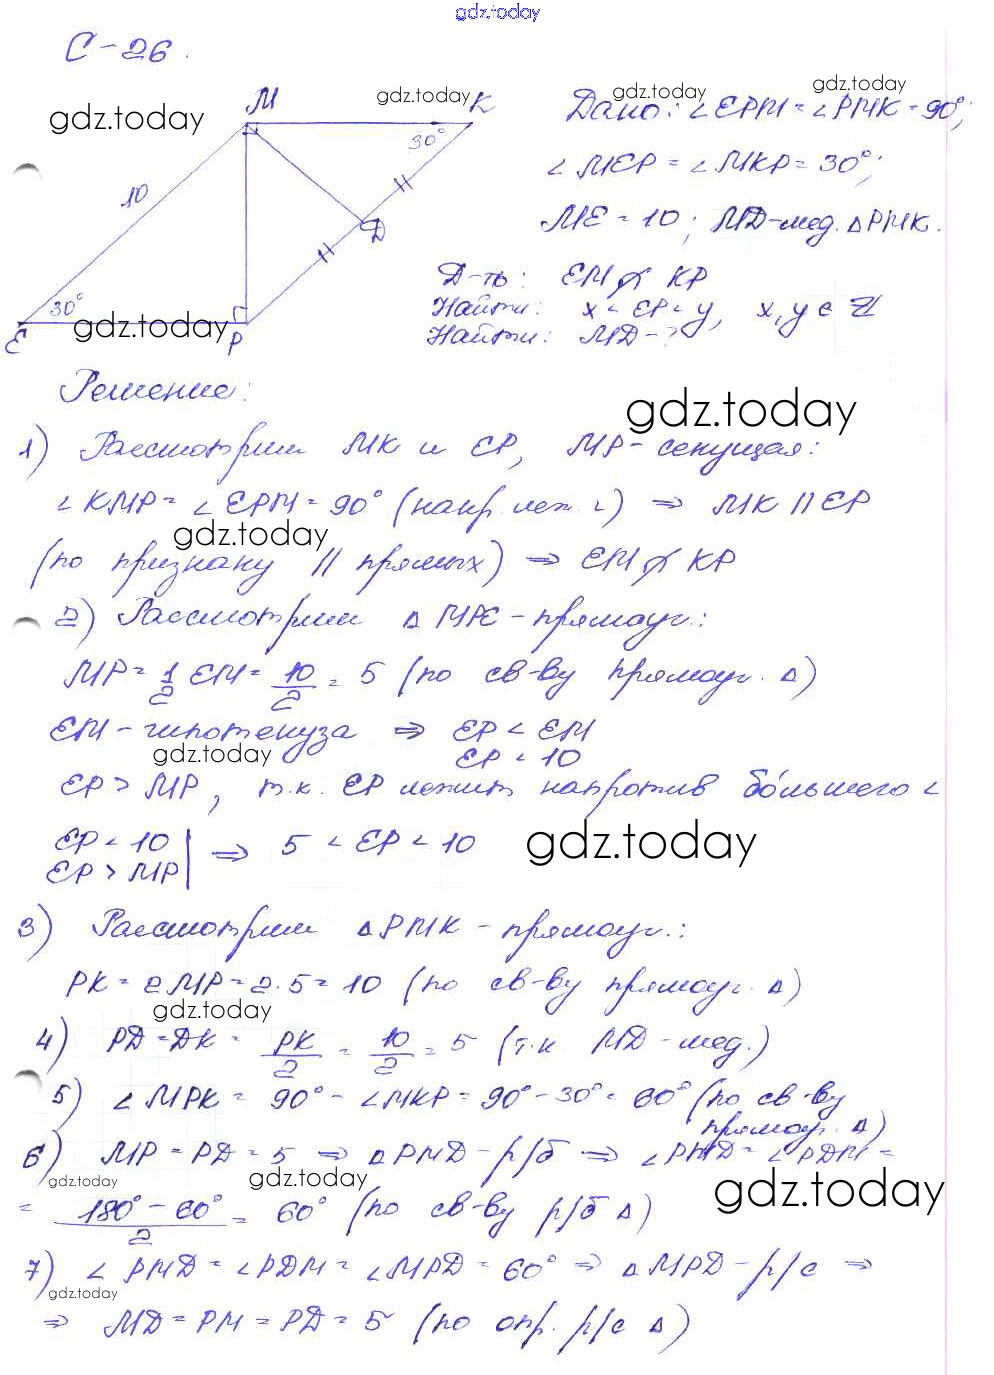 gdz.today
С-26.
M
gdz.today
K
gdz.today
gdz.today
gdz.today
30°
10
D
30°
gdz.today
E
P
Дано: ∠EPM = ∠PMK = 90°;
∠MEP = ∠MKP = 30°;
ME = 10; MD-мед. △PMK.
Д-ть: EM ∦ KP
Найти: x < EP < y, x, y ∈ Z
Найти: MD - ?
Решение:
gdz.today
1) Рассмотрим MK и EP, MP - секущая:
∠KMP = ∠EPM = 90° (накр. леж. ∠) ⇒ MK || EP
gdz.today
(по признаку || прямых) ⇒ EM ∦ KP
2) Рассмотрим △MPE - прямоуг.:
MP = 1/2 EM = 10/2 = 5 (по св-ву прямоуг. △)
EM - гипотенуза ⇒ EP < EM
gdz.today
EP < 10
EP > MP, т.к. EP лежит напротив бо́льшего ∠
EP < 10
EP > MP | ⇒ 5 < EP < 10
gdz.today
3) Рассмотрим △PMK - прямоуг.:
PK = 2MP = 2·5 = 10 (по св-ву прямоуг. △)
gdz.today
4) PD = DK = PK/2 = 10/2 = 5 (т.к MD - мед.)
5) ∠MPK = 90° - ∠MKP = 90° - 30° = 60° (по св-ву
прямоуг. △)
6) MP = PD = 5 ⇒ △PMD - р/б ⇒ ∠PMD = ∠PDM =
gdz.today
gdz.today
gdz.today
= 180° - 60°/2 = 60° (по св-ву р/б △)
7) ∠PMD = ∠PDM = ∠MPD = 60° ⇒ △MPD - р/с ⇒
gdz.today
⇒ MD = PM = PD = 5 (по опр. р/с △)